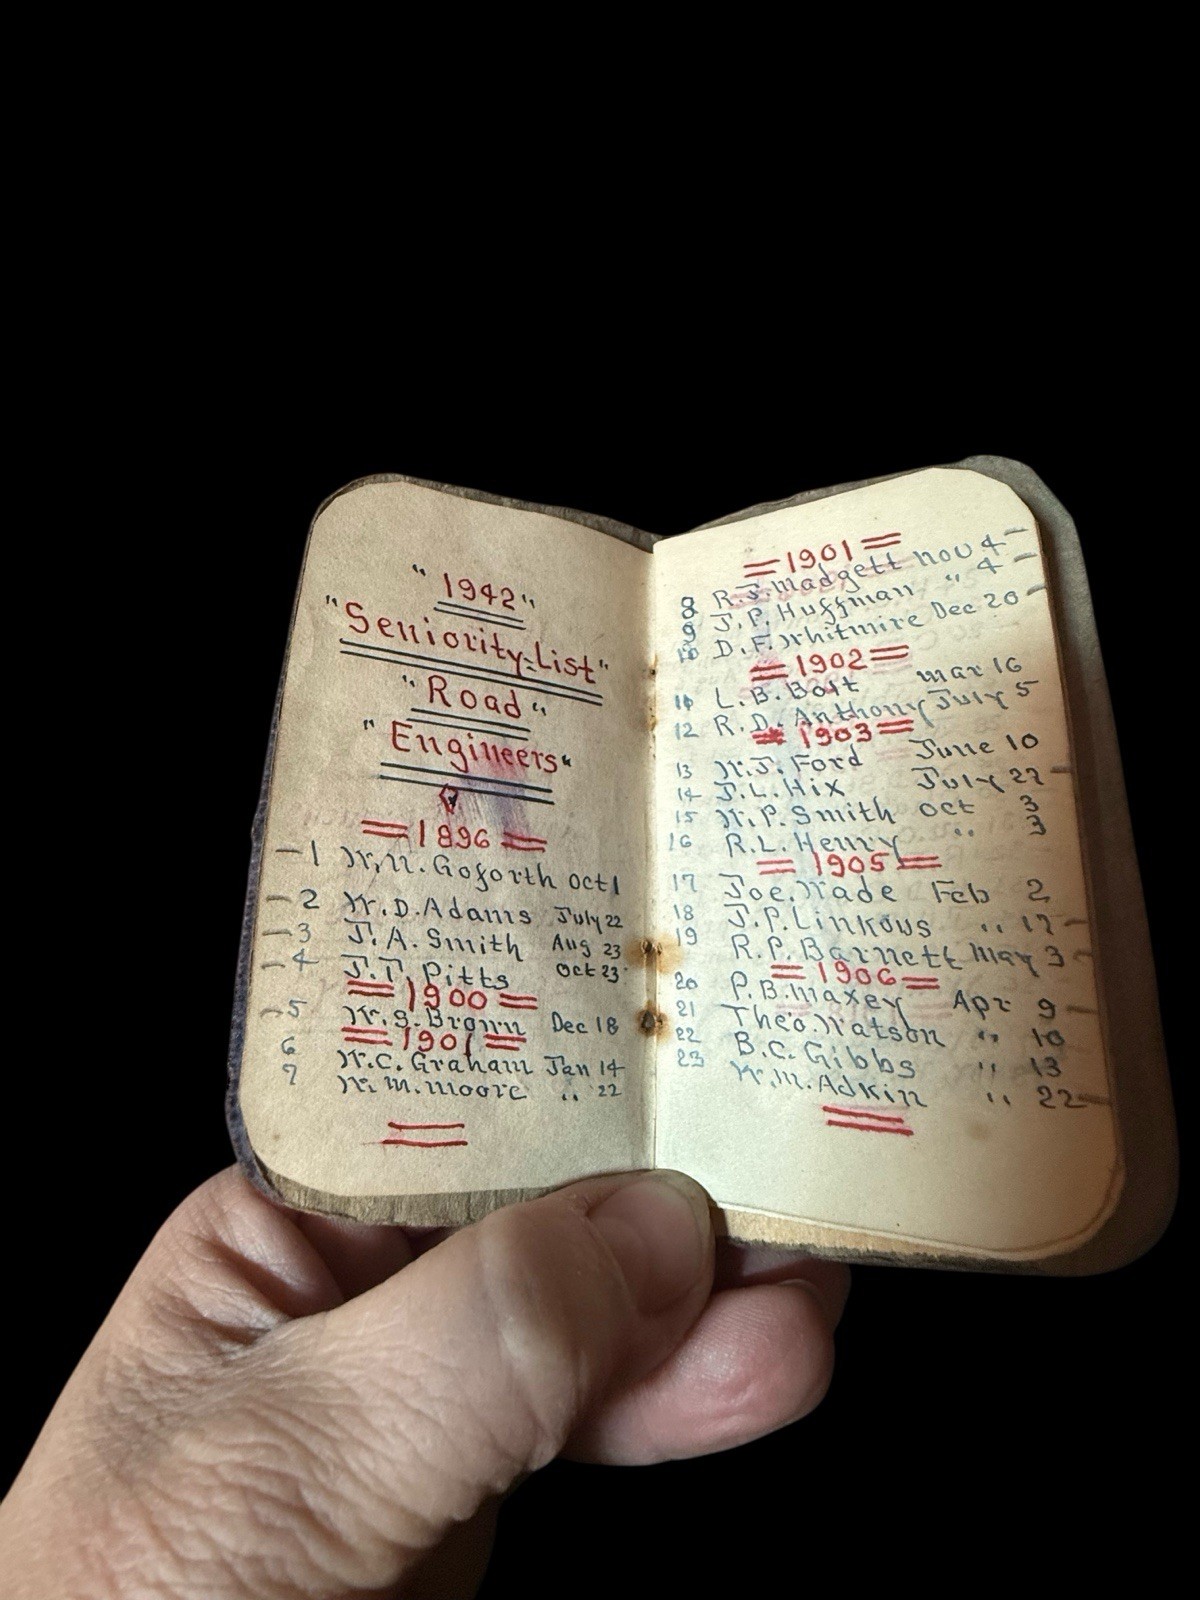 " 1942 "
"Seniority-List"
"Road"
"Engineers"
= 1896 =
-1 W.N. Goforth Oct 1
-2 W.D. Adams July 22
-3 J.A. Smith Aug 23
-4 J.T. Pitts Oct 23
= 1900 =
-5 W.S. Brown Dec 18
= 1901 =
6 W.C. Graham Jan 14
7 W.M. Moore " 22
= 1901 =
8 R.J. Madgett Nov 4 -
9 J.P. Huffman " 4 -
10 D.F. Whitmire Dec 20 -
= 1902 =
11 L.B. Bost Mar 16
12 R.D. Anthony July 5
= 1903 =
13 W.J. Ford June 10
14 J.L. Hix July 27 -
15 W.P. Smith Oct 3
16 R.L. Henry " 3
= 1905 =
17 Joe. Wade Feb 2
18 J.P. Linkous " 17 -
19 R.P. Barnett May 3 -
= 1906 =
20 P.B. Maxey Apr 9 -
21 Theo. Watson " 10
22 B.C. Gibbs " 13
23 W.M. Adkin " 22 -